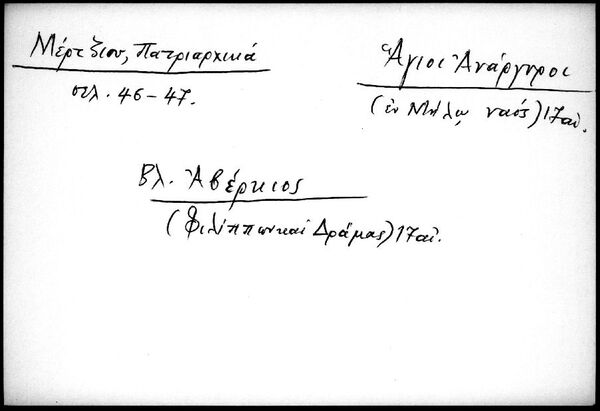 Μέρτζιου, Πατριαρχικά
σελ. 46-47.
Ἅγιοι Ἀνάργυροι
(ἐν Μήλῳ ναός) 17 αἰ.
Βλ. Ἀβέρκιος
(Φιλίππων καὶ Δράμας) 17 αἰ.